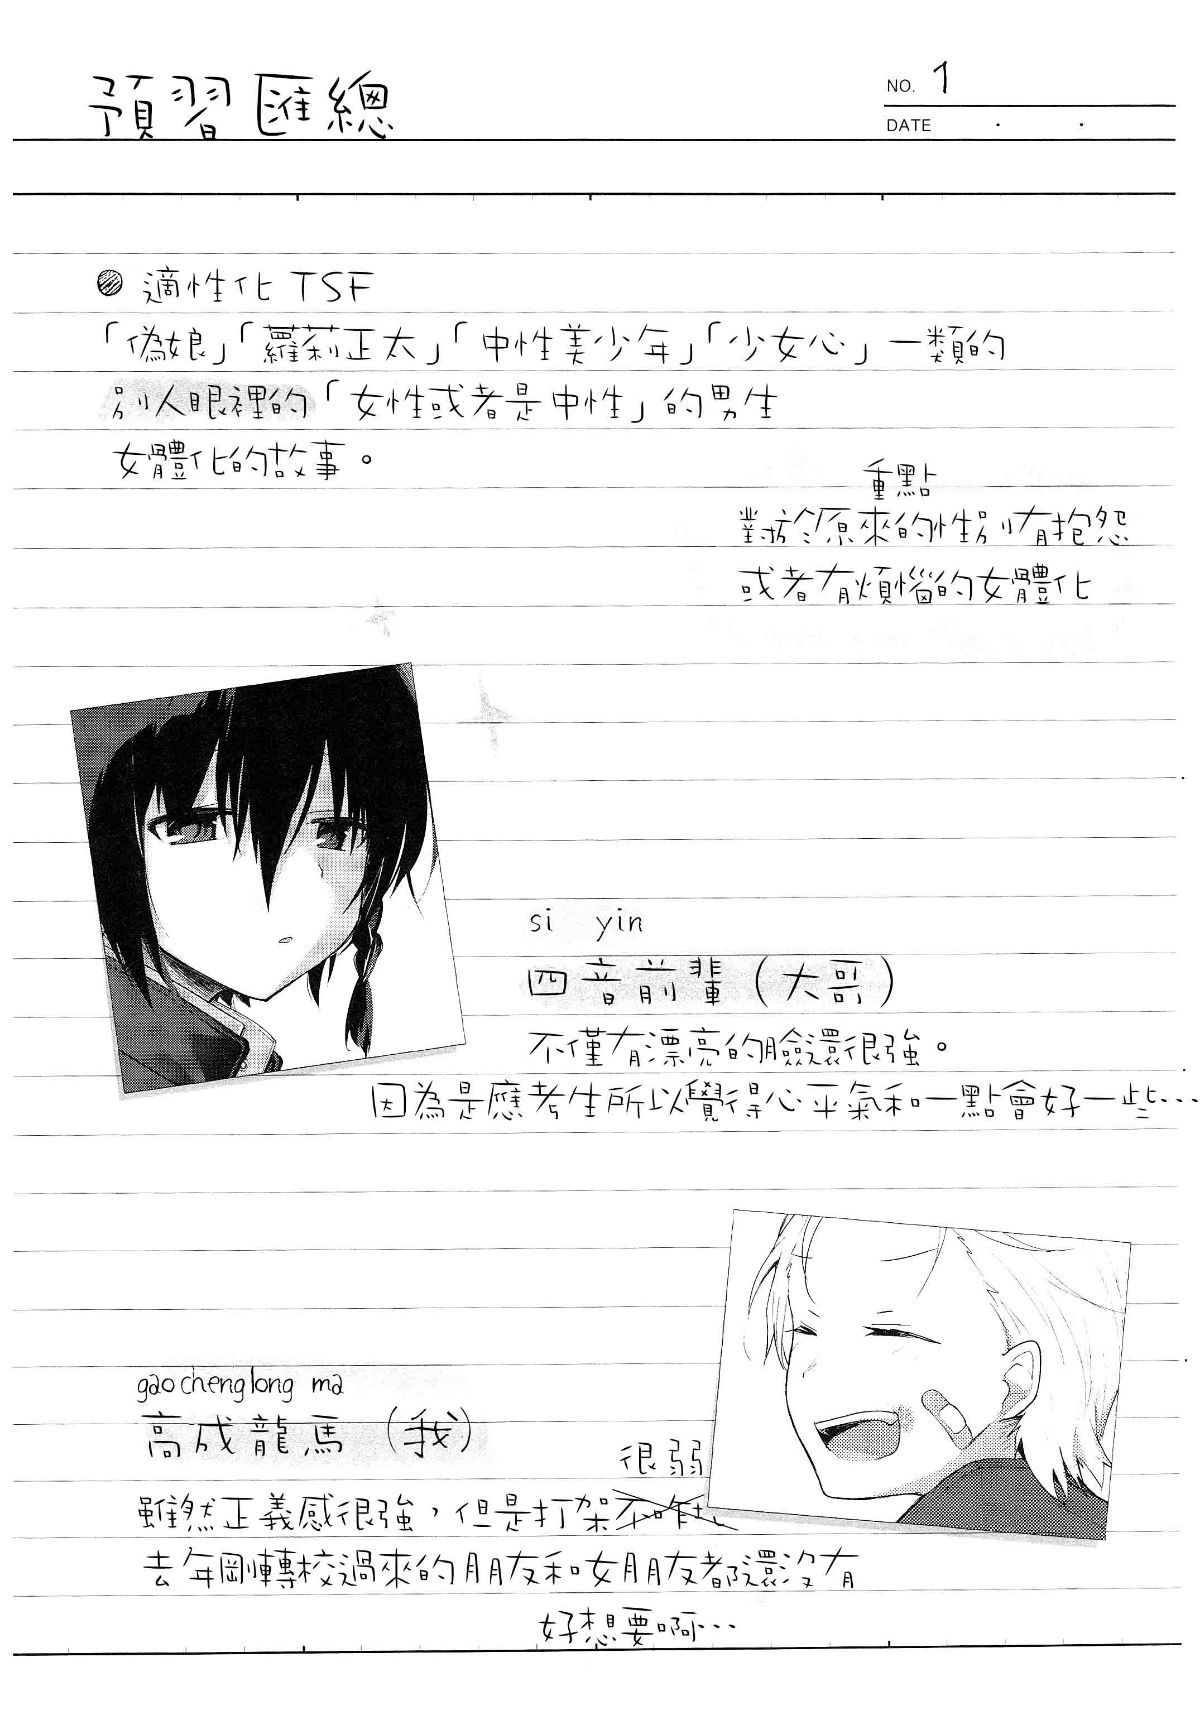 預習匯總
NO. 1
DATE ・ ・
適性化TSF
「偽娘」「蘿莉正太」「中性美少年」「少女心」一類的
別人眼裡的「女性或者是中性」的男生
女體化的故事。
重點
對於原來的性別有抱怨
或者有煩惱的女體化
si yin
四音前輩(大哥)
不僅有漂亮的臉還很強。
因為是應考生所以覺得心平氣和一點會好一些…
gao cheng long ma
高成龍馬(我)
很弱
雖然正義感很強，但是打架不咋地
去年剛轉校過來的朋友和女朋友都還沒有
好想要啊…